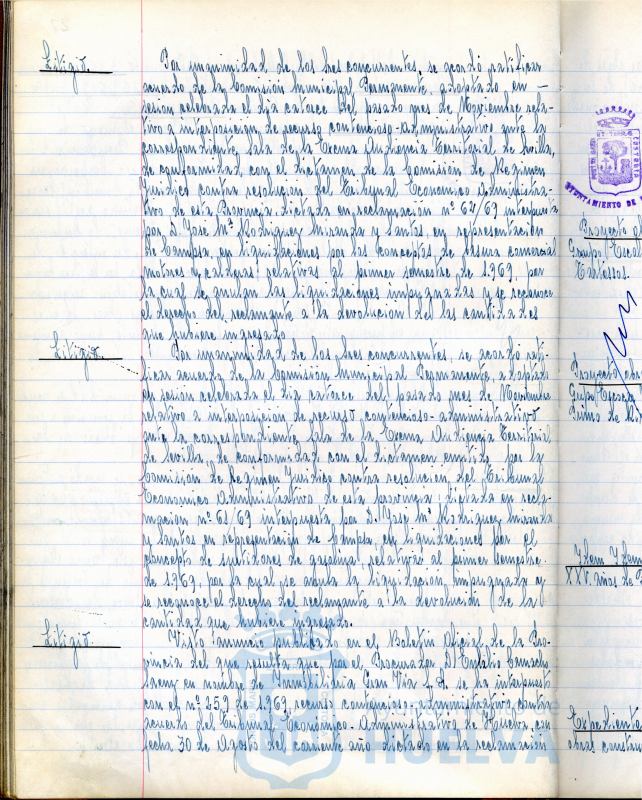 Litigio.
Por unanimidad de los tres concurrentes, se acordó ratificar
acuerdo de la Comisión Municipal Permanente, adoptado, en —
sesion celebrada el dia catorce del pasado mes de Noviembre rela-
tivo a interposicion de recurso contencioso-administrativo ante la
correspondiente Sala de la Excma Audiencia Territorial de Sevilla,
de conformidad, con el dictamen de la Comisión de Regimen
Juridico contra resolucion del Tribunal Economico Administra-
tivo de esta Provincia, dictada en reclamación nº 64/69 interpuesta
por D. Jose Mª Rodriguez Miranda y Santos, en representación
de Campsa, en liquidaciones por los conceptos de
motores y calderas relativas al primer semestre de 1.969, por
la cual se anulan las liquidaciones impugnadas y se reconoce
el derecho del reclamante a la devolucion del las cantidades
que hubiere ingresado.
Litigio.
Por unanimidad de los tres concurrentes, se acordó rati-
ficar acuerdo de la Comisión Municipal Permanente, adoptado
en sesión celebrada el dia catorce del pasado mes de Noviembre
relativo a interposicion de recurso contencioso-administrativo
ante la correspondiente Sala de la Excma Audiencia Territorial
de Sevilla, de conformidad con el dictamen emitido por la
Comisión de Regimen Juridico contra resolucion del Tribunal
Economico Administrativo de esta provincia, dictada en recla-
macion nº 63/69 interpuesta por D. Jose Mª Rodriguez Miranda
y Santos en representación de Campsa, en liquidaciones por el
concepto de surtidores de gasolina, relativas al primer semestre
de 1.969, por la cual se anula la liquidación impugnada y
se reconoce el derecho del reclamante a la devolución de la
cantidad que hubiere ingresado.
Litigio.
Visto anuncio publicado en el Boletin Oficial de la Pro-
vincia del que resulta que por el Procurador D. Camacho
en nombre de Inmobiliaria Gran Via S.A. se ha interpuesto
con el nº 259 de 1.969, recurso contencioso-administrativo contra
acuerdo del Tribunal Económico-Administrativo de Huelva, con
fecha 30 de Agosto del corriente año dictado en la reclamación
AYUNTAMIENTO DE
Proyecto
Grupo Escol
Proyecto
Grupo Escol
Primo de Ri
Idem Idem
XXV años de P
Expediente
obras constru
HUELVA